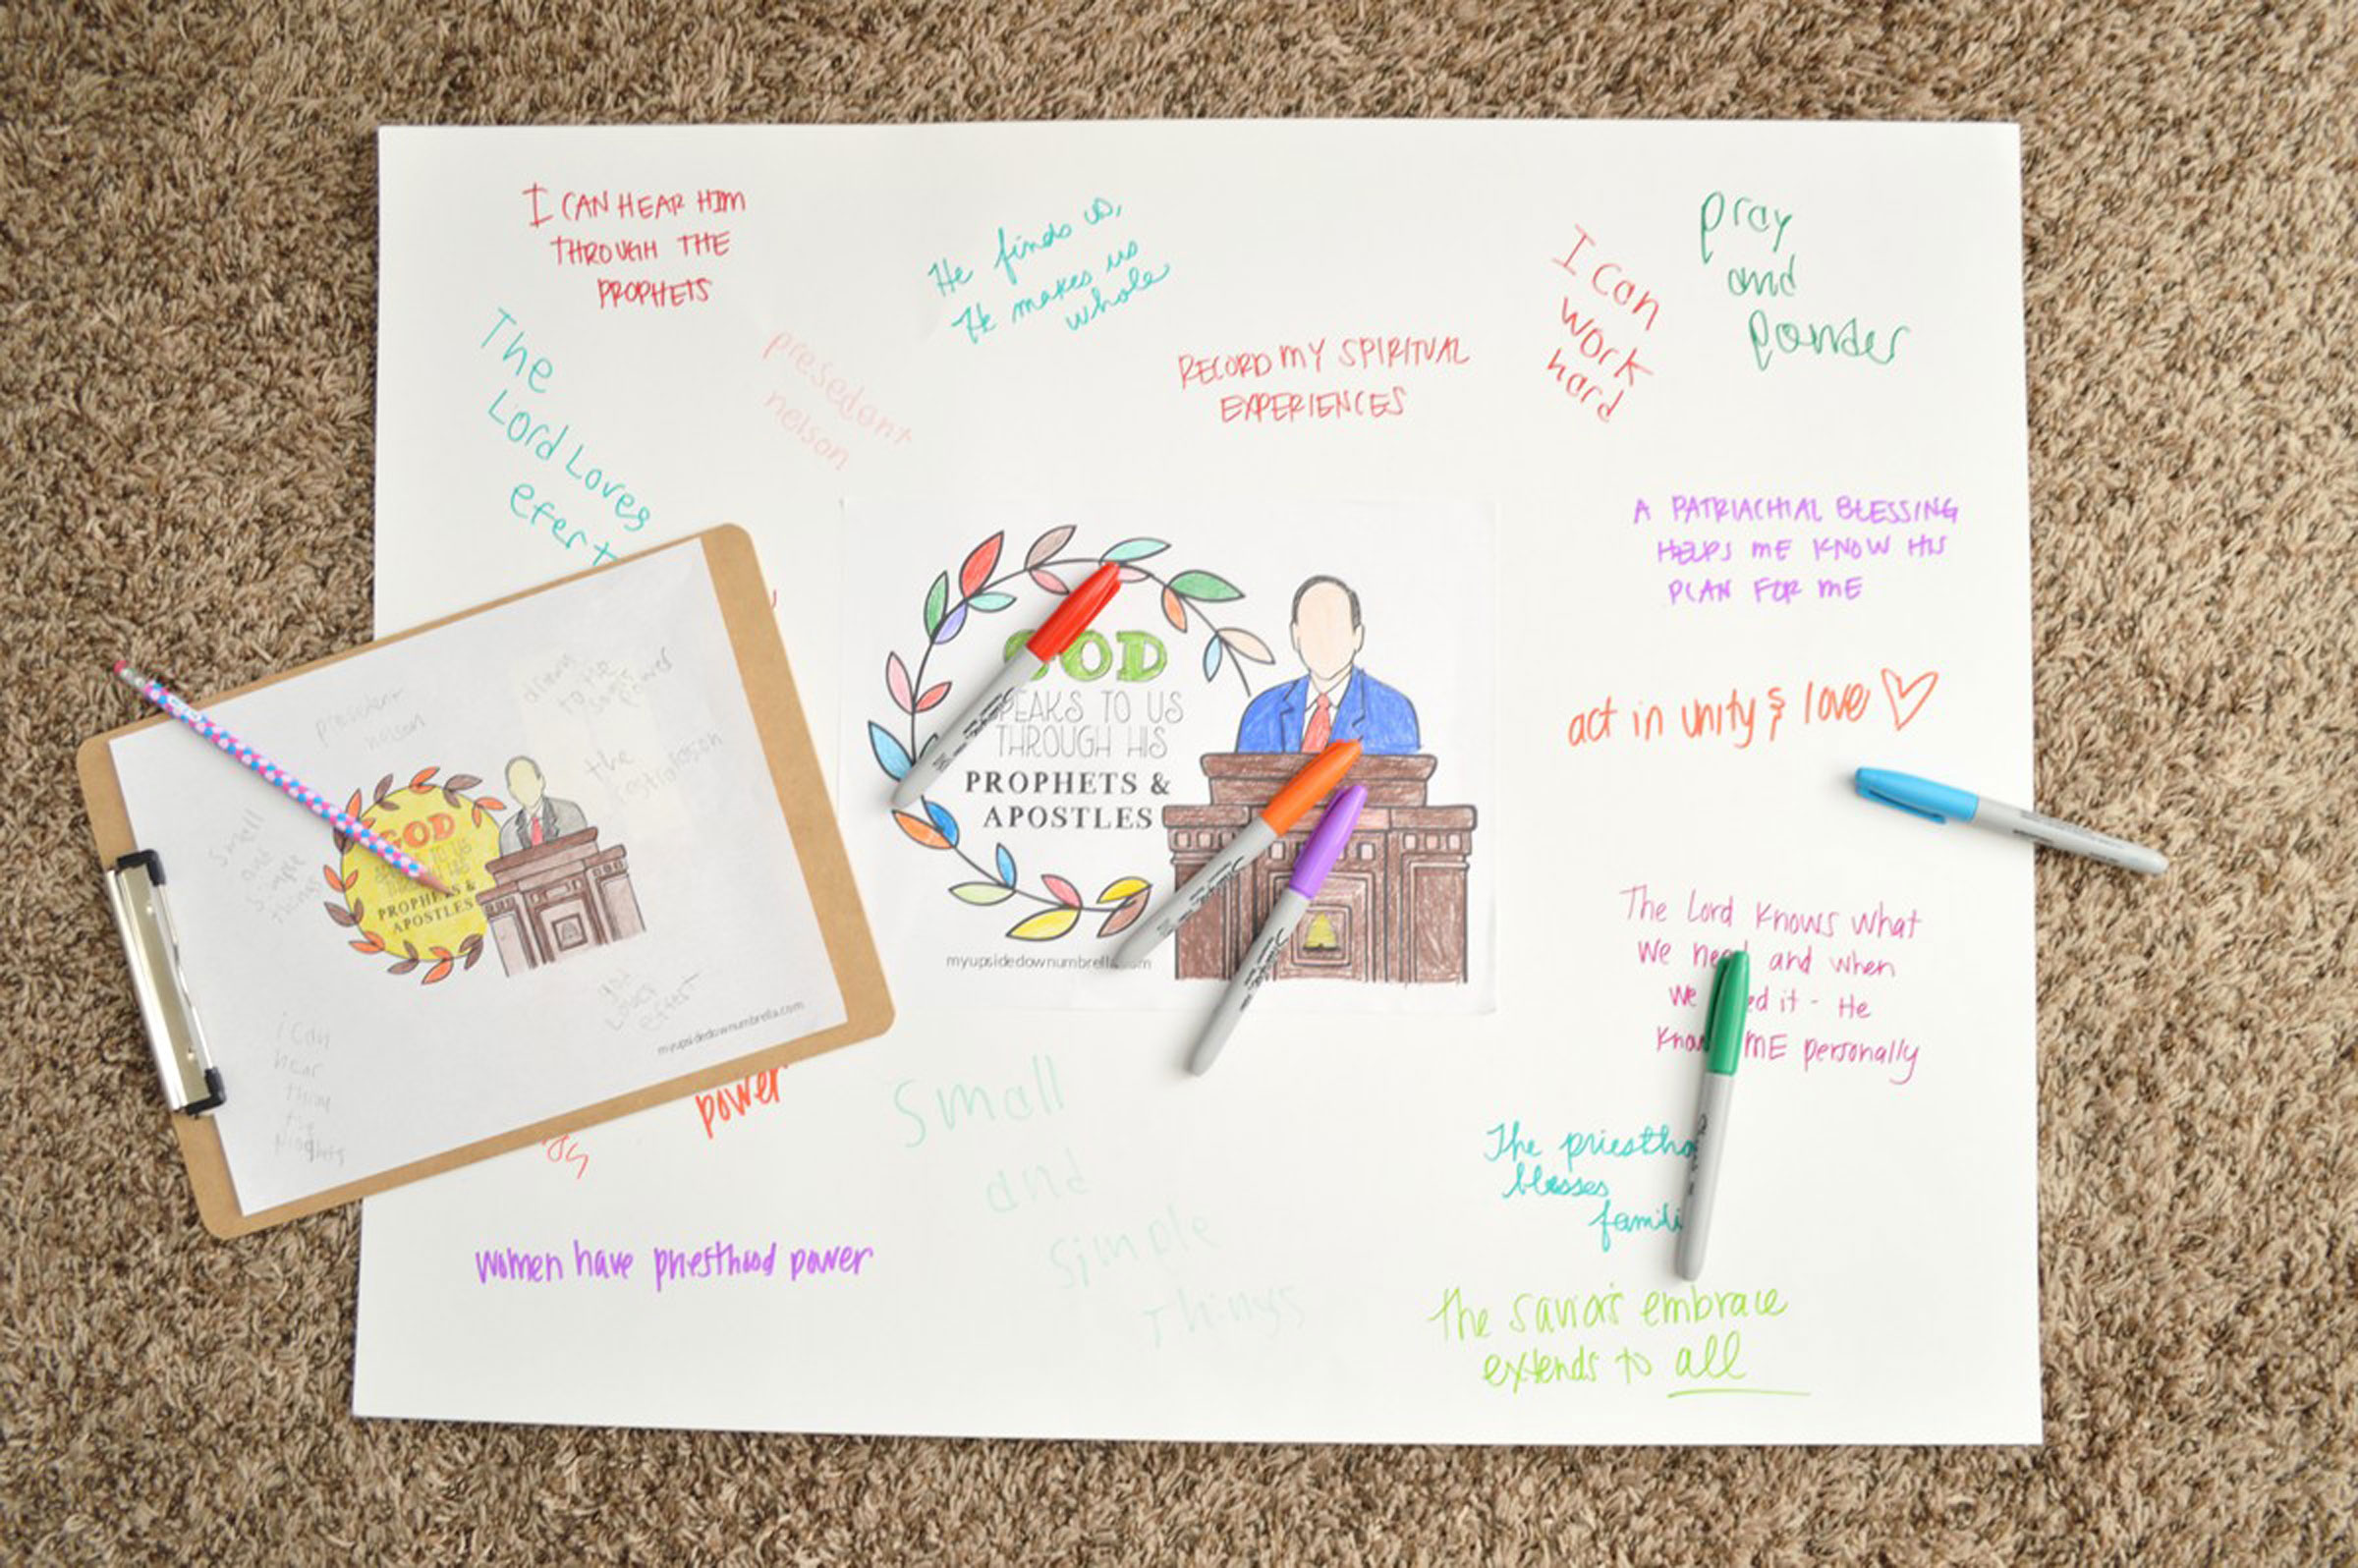 I CAN HEAR HIM
THROUGH THE
PROPHETS
He finds us,
He makes us
whole
pray
and
ponder
I can
work
hard
The
Lord Loves
efert
presedant
nelson
RECORD MY SPIRITUAL
EXPERIENCES
A PATRIACHIAL BLESSING
HELPS ME KNOW HIS
PLAN FOR ME
act in unity & love
GOD
SPEAKS TO US
THROUGH HIS
PROPHETS &
APOSTLES
myupsidedownumbrella.com
president
nelson
power
the
small
and
simple
things
GOD
TO US
THROUGH HIS
PROPHETS &
APOSTLES
god
Loves
effert
i can
hear
myupsidedownumbrella.com
The Lord knows what
we need and when
we need it - He
knows ME personally
power
Small
and
simple
things
The priestho
blesses
famili
women have priesthood power
the savior's embrace
extends to all